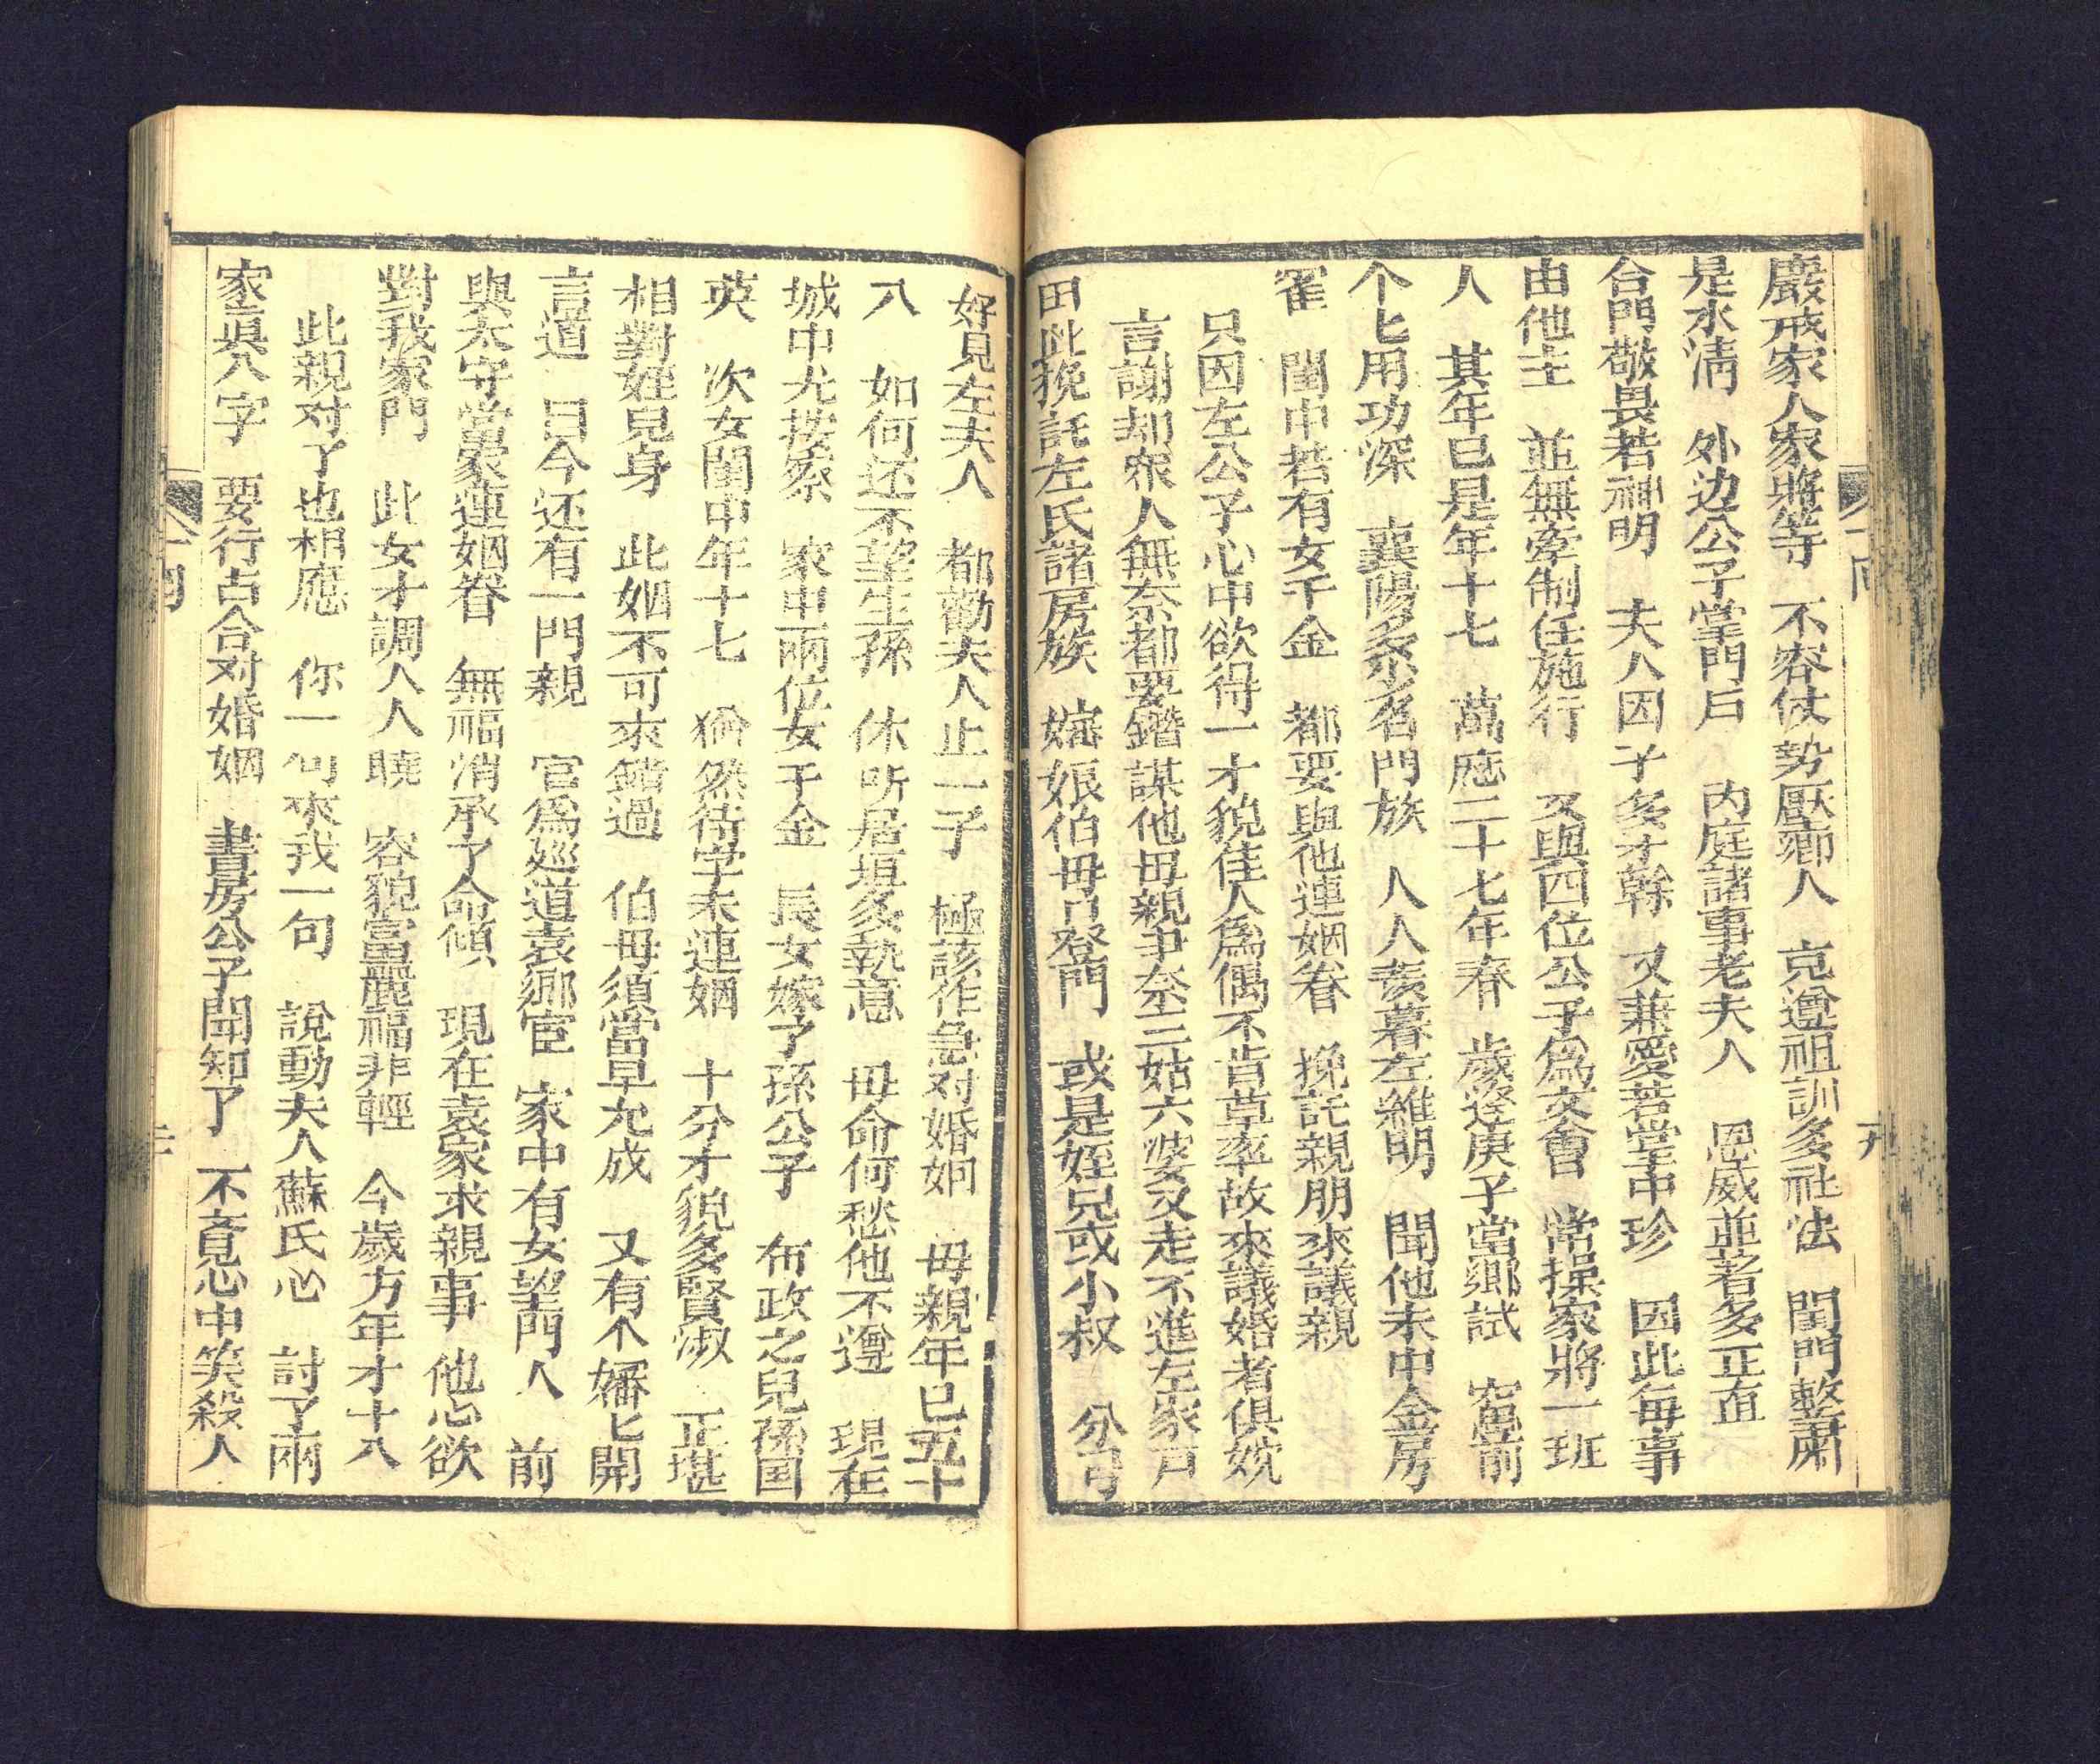 嚴戒家人家將等　不容仗势壓鄉人　克遵祖訓多社法　閨門整肅
是水淸　外边公子掌門戶　內庭諸事老夫人　恩威並著多正直
合門敬畏若神明　夫人因子多才幹　又兼愛若掌中珍　因此每事
由他主　並無牽制任施行　又與四位公子為文會　常操家將一班
人　其年已是年十七　萬應二十七年春　歲逢庚子當鄕試　窓前
个匕用功深　襄陽多少名門族　人人羨慕左維明　聞他未中金房
閨中若有女千金　都要與他連姻眷　挽託親朋來議親
只因左公子心中欲得一才貌佳人為偶不肯草率故來議婚者俱婉
言謝却衆人無奈都要鑽謀他毋親尹奈三姑六婆又走不進左家戶
田此挽託左氏諸房族　嬸娘伯毋皆登門　或是姪兄或小叔　分司
好見左夫人　都勸夫人止一子　極該作急对婚姻　毋親年已五十
八　如何还不望生孫　休听居垣多執意　毋命何愁他不遵　現在
城中尤按察　家中兩位女千金　長女嫁了孫公子　布政之兒孫国
英　次女閨中年十七　猶然待字未連姻　十分才貌多賢淑　正堪
相對姪兒身　此姻不可來錯過　伯毋須當早允成　又有个嬸匕開
言道　目今还有一門親　官為廵道袁鄉宦　家中有女望門人　前
與太守當蒙連姻眷　無福消承了命傾　現在袁家求親事　他心欲
對我家門　此女才調人人曉　容貌富麗福非輕　今歲方年才十八
此親对了也相應　你一句來我一句　說動夫人蘇氏心　討了兩
家眞八字　要行占合对婚姻　書房公子聞知了　不竟心中笑殺人